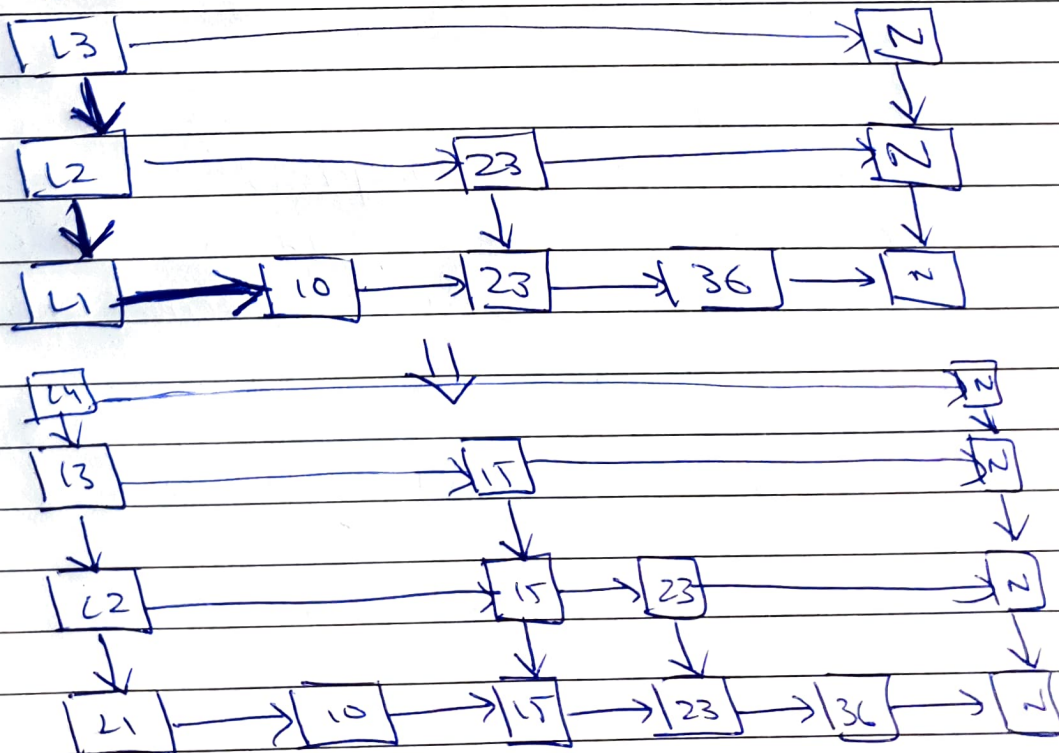 L3 N
L2 23 N
L1 10 23 36 N
L4 N
L3 15 N
L2 15 23 N
L1 10 15 23 36 N